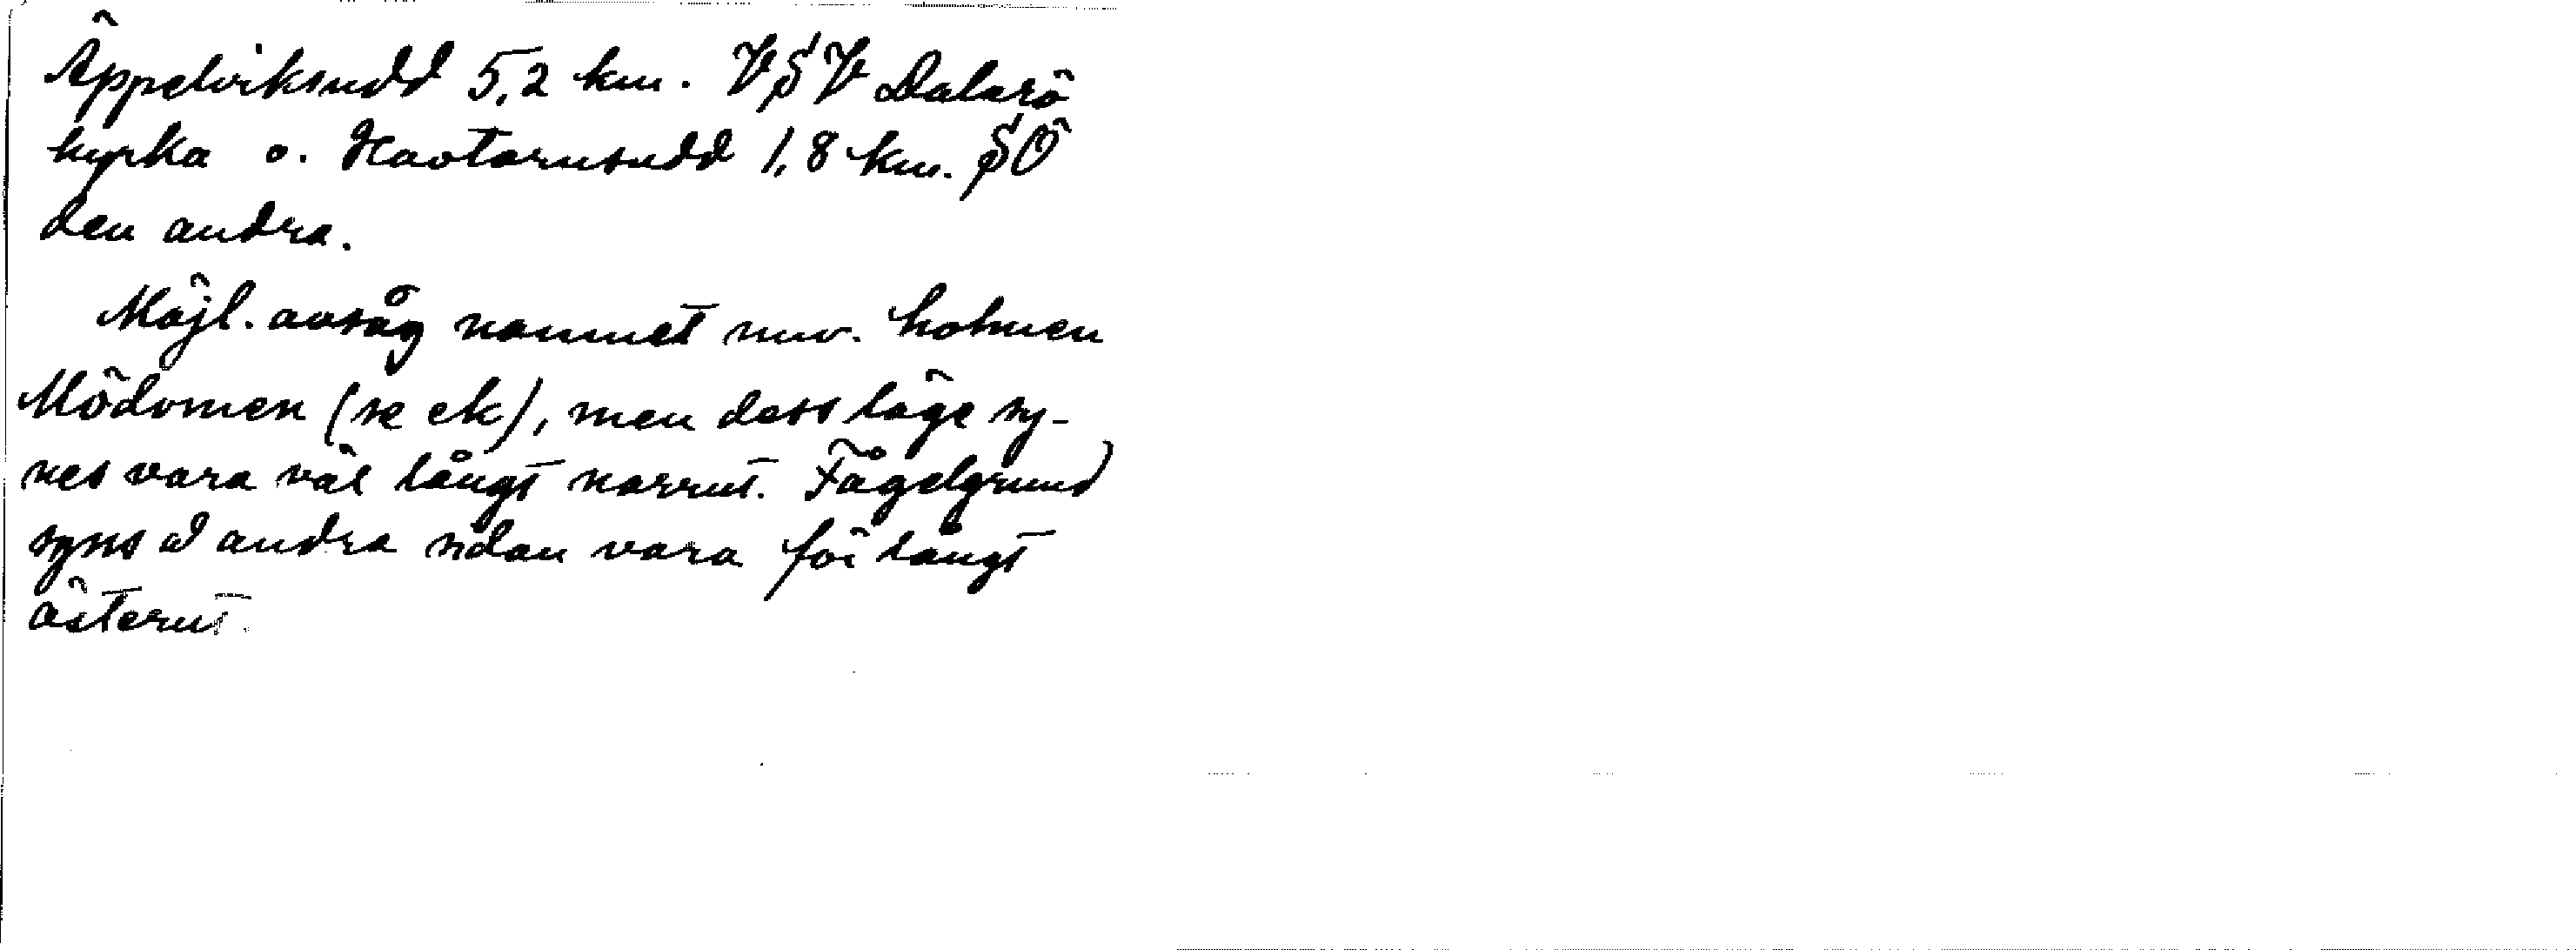 Äppelviksudd 5,2 km. VSV Dalarö
kyrka o. Havtornsudd 1,8 km. SÖ
den andra.
Möjl. avsåg namnet nuv. holmen
Mödomen (se ek), men dess läge sy-
nes vara väl långt norrut. Fågelgrund
syns å andra sidan vara för långt
österut.